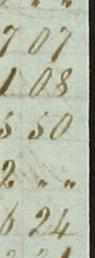 " "
7 07
1 08
5 50
2 " "
6 24